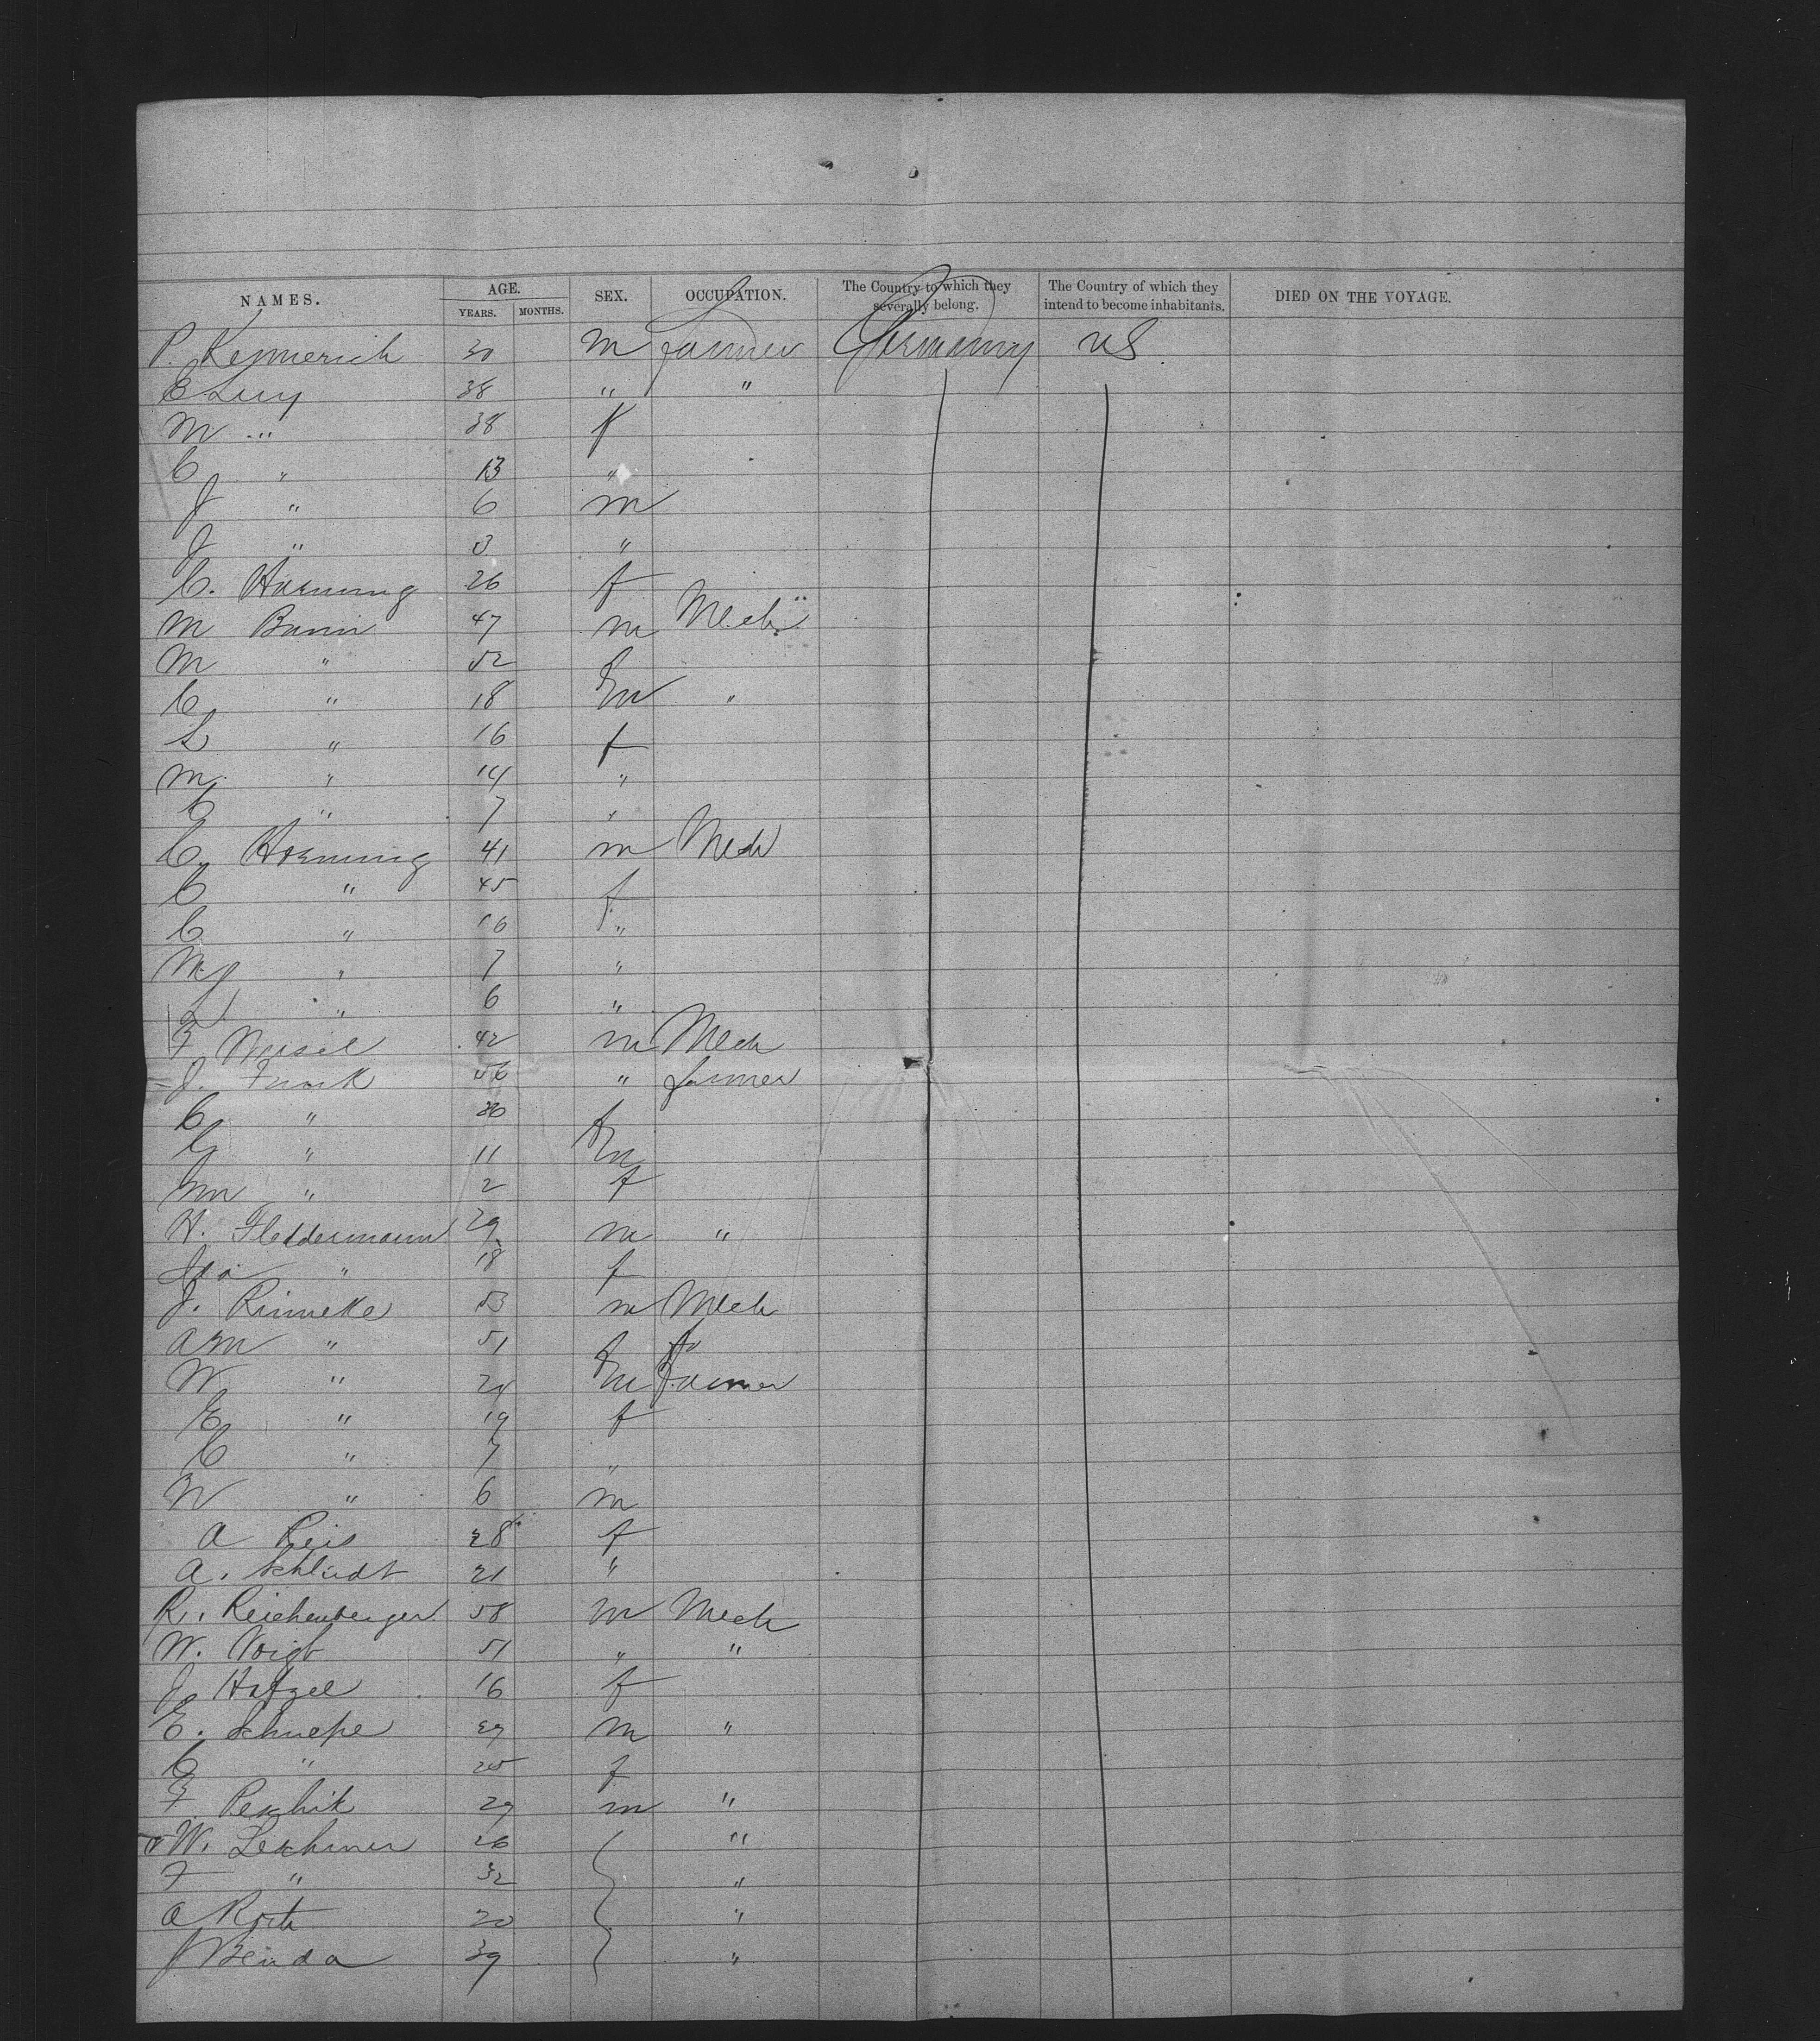 NAMES. AGE. YEARS. MONTHS. SEX. OCCUPATION. The Country to which they severally belong. The Country of which they intend to become inhabitants. DIED ON THE VOYAGE.
P. Kemmerich 30 m farmer Germany US
E Luy 38 " "
M " 38 f
C " 13 "
J " 6 m
J " 3 "
C. Hornung 26 f
M Bannin 47 m Mech
M " 52 f
C " 18 m "
L " 16 f
M " 14 "
C " 7 "
C. Hornung 41 m Mech
C " 45 f
C " 16 "
M " 7 "
" 6 "
F Meisel 42 m Mech
J. Funk 56 " farmer
C " 30 f
C " 11 m
" 2 f
H. Fleddermann 29 m "
Ida " 18 f
J. Rinneke 53 m Mech
AM " 51 f
W " 24 m farmer
E " 19 f
C " 7 "
W " 6 m
A Reis 28 f
A. Schlüdt 21 "
R. Reichenberger 58 m Mech
W. Voigt 51 " "
J Hatzel 16 f
E. Schnepe 29 m "
C " 25 f
F Peschik 29 m "
W. Leschner 26 "
F " 32 "
A Roth 20 "
J Benda 39 "